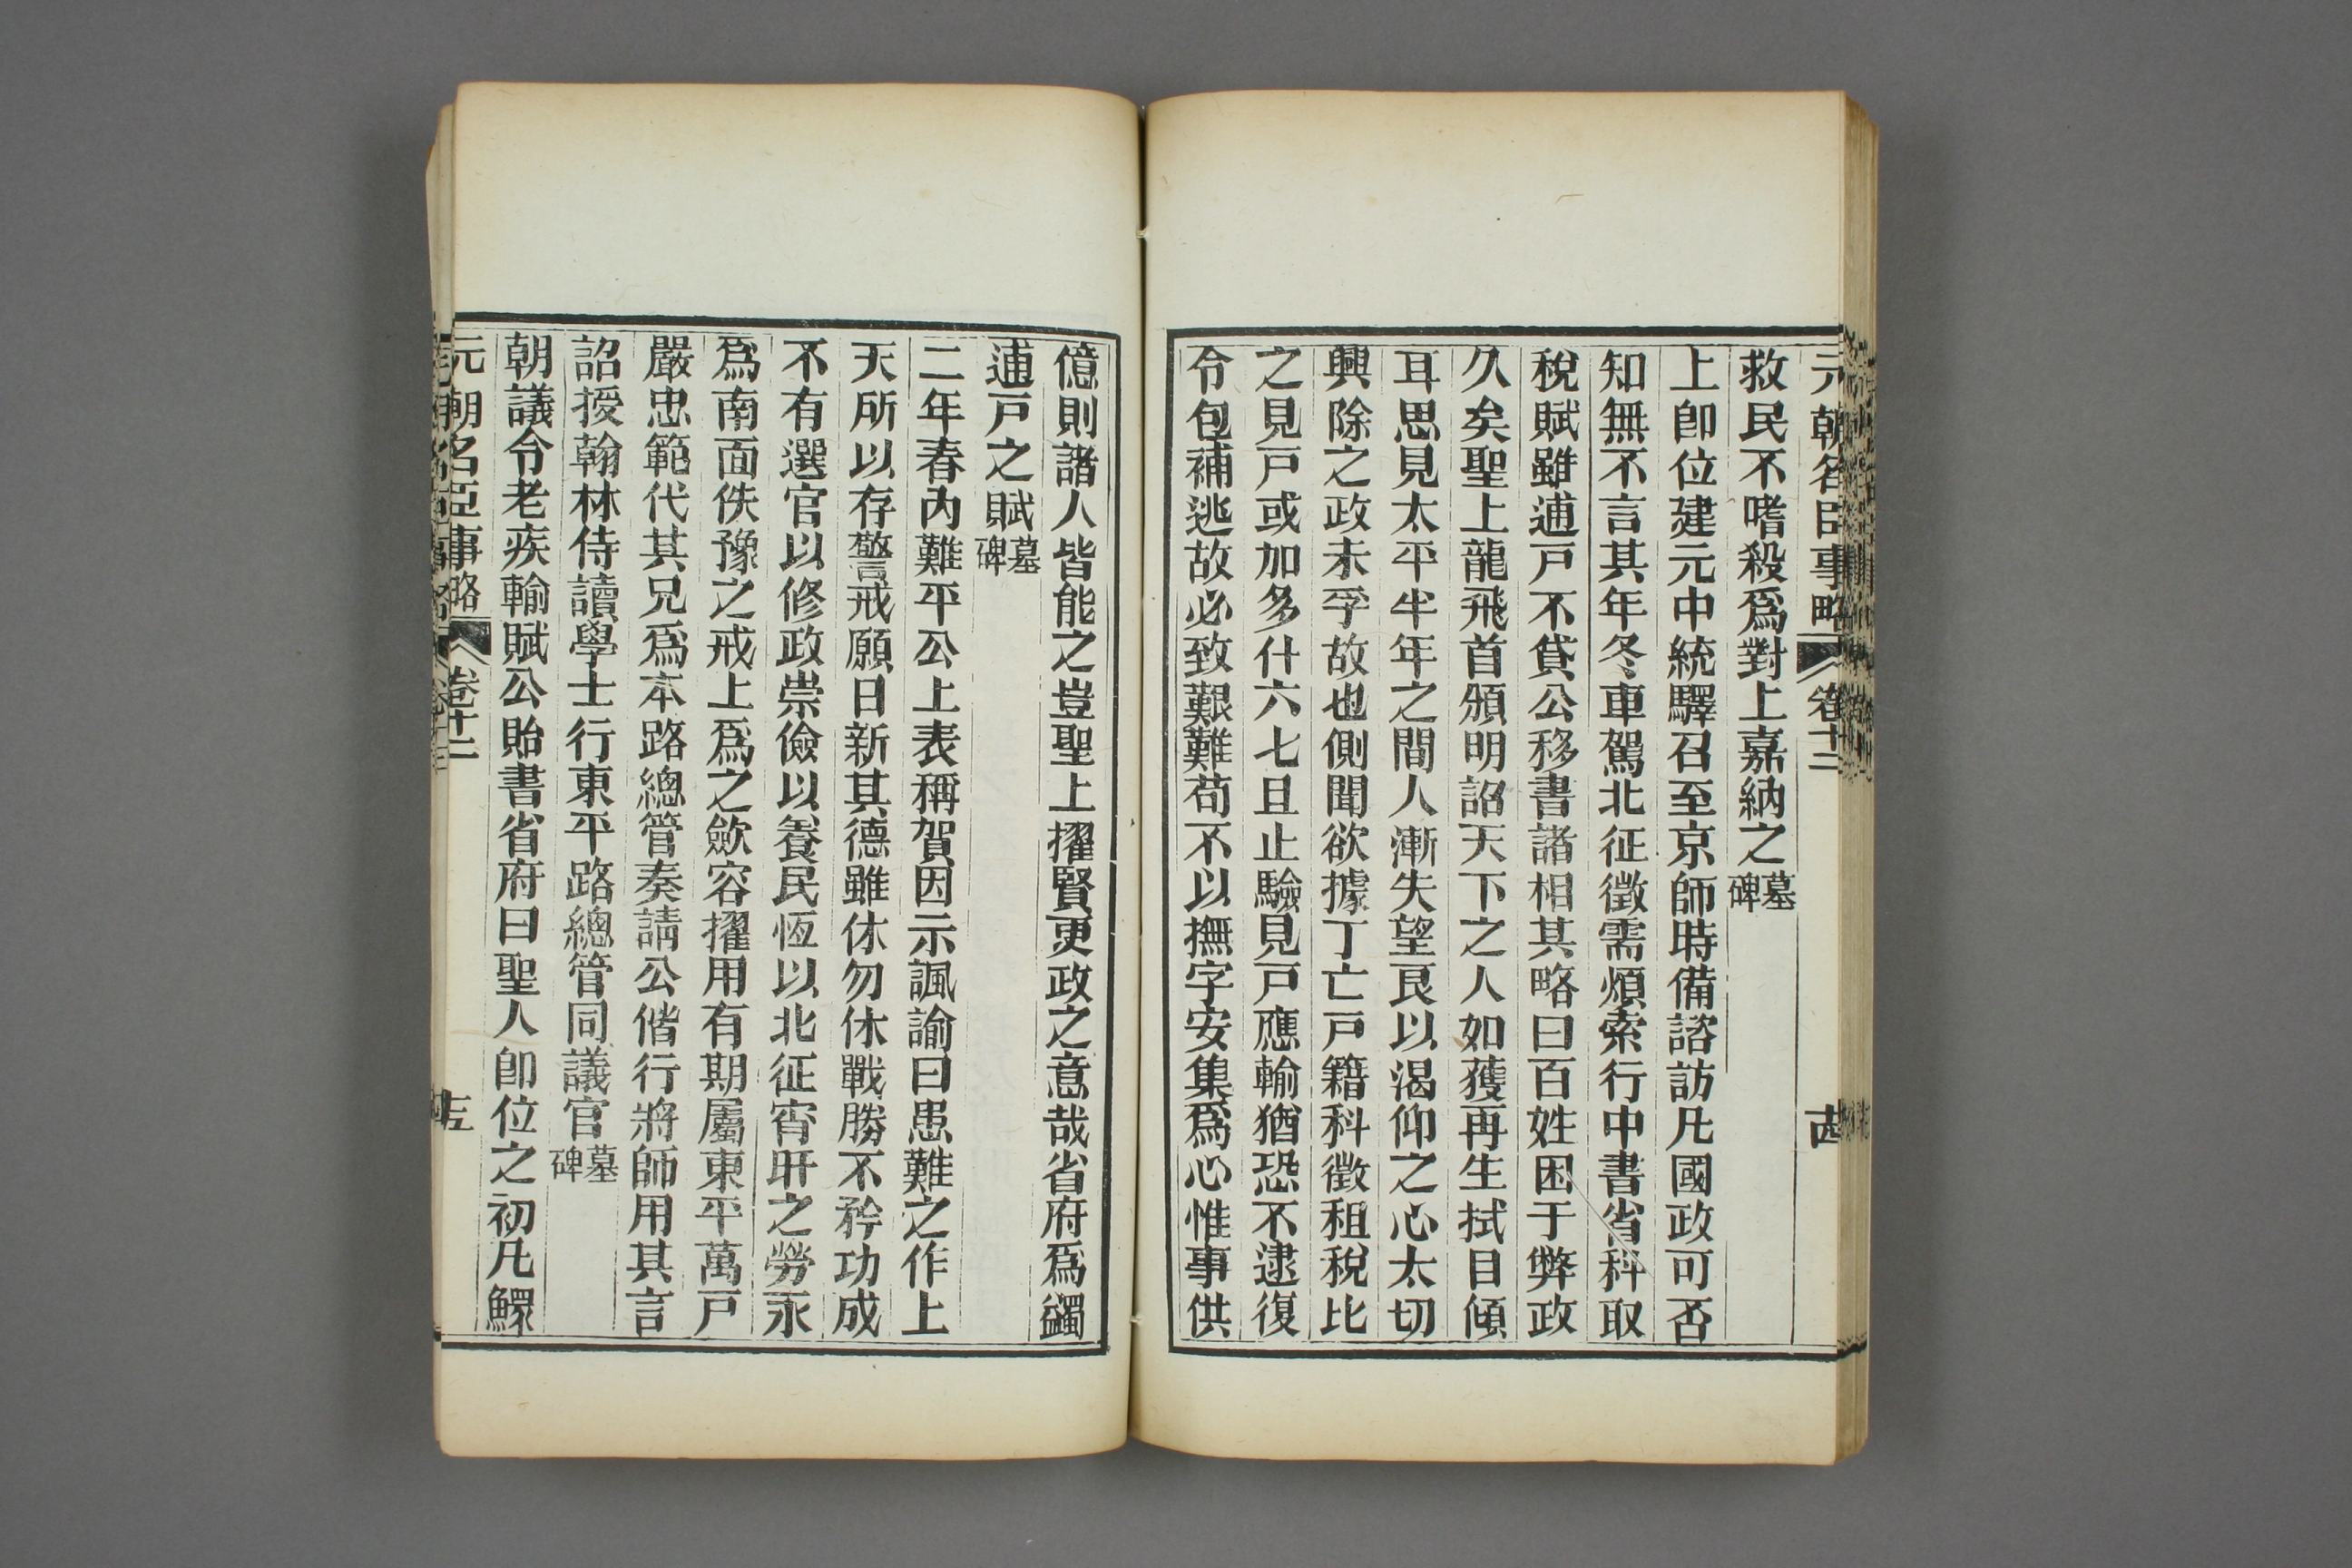 元朝名臣事略 卷十二 十四
救民不嗜殺爲對上嘉納之墓碑
上卽位建元中統驛召至京師時備諮訪凡國政可否
知無不言其年冬車駕北征徵需煩索行中書省科取
稅賦雖逋戸不貸公移書諸相其略曰百姓困于弊政
久矣聖上龍飛首頒明詔天下之人如獲再生拭目傾
耳思見太平半年之間人漸失望良以渴仰之心太切
興除之政未孚故也側聞欲據丁亡戸籍科徵租稅比
之見戸或加多什六七且止驗見戸應輸猶恐不逮復
令包補逃故必致艱難苟不以撫字安集爲心惟事供
億則諸人皆能之豈聖上擢賢更政之意哉省府爲蠲
逋戸之賦墓碑
二年春內難平公上表稱賀因示諷諭曰患難之作上
天所以存警戒願日新其德雖休勿休戰勝不矜功成
不有選官以修政崇儉以養民恆以北征宵旰之勞永
爲南面佚豫之戒上爲之歛容擢用有期屬東平萬戸
嚴忠範代其兄爲本路總管奏請公偕行將師用其言
詔授翰林侍讀學士行東平路總管同議官墓碑
朝議令老疾輸賦公貽書省府曰聖人卽位之初凡鰥
元朝名臣事略 卷十二